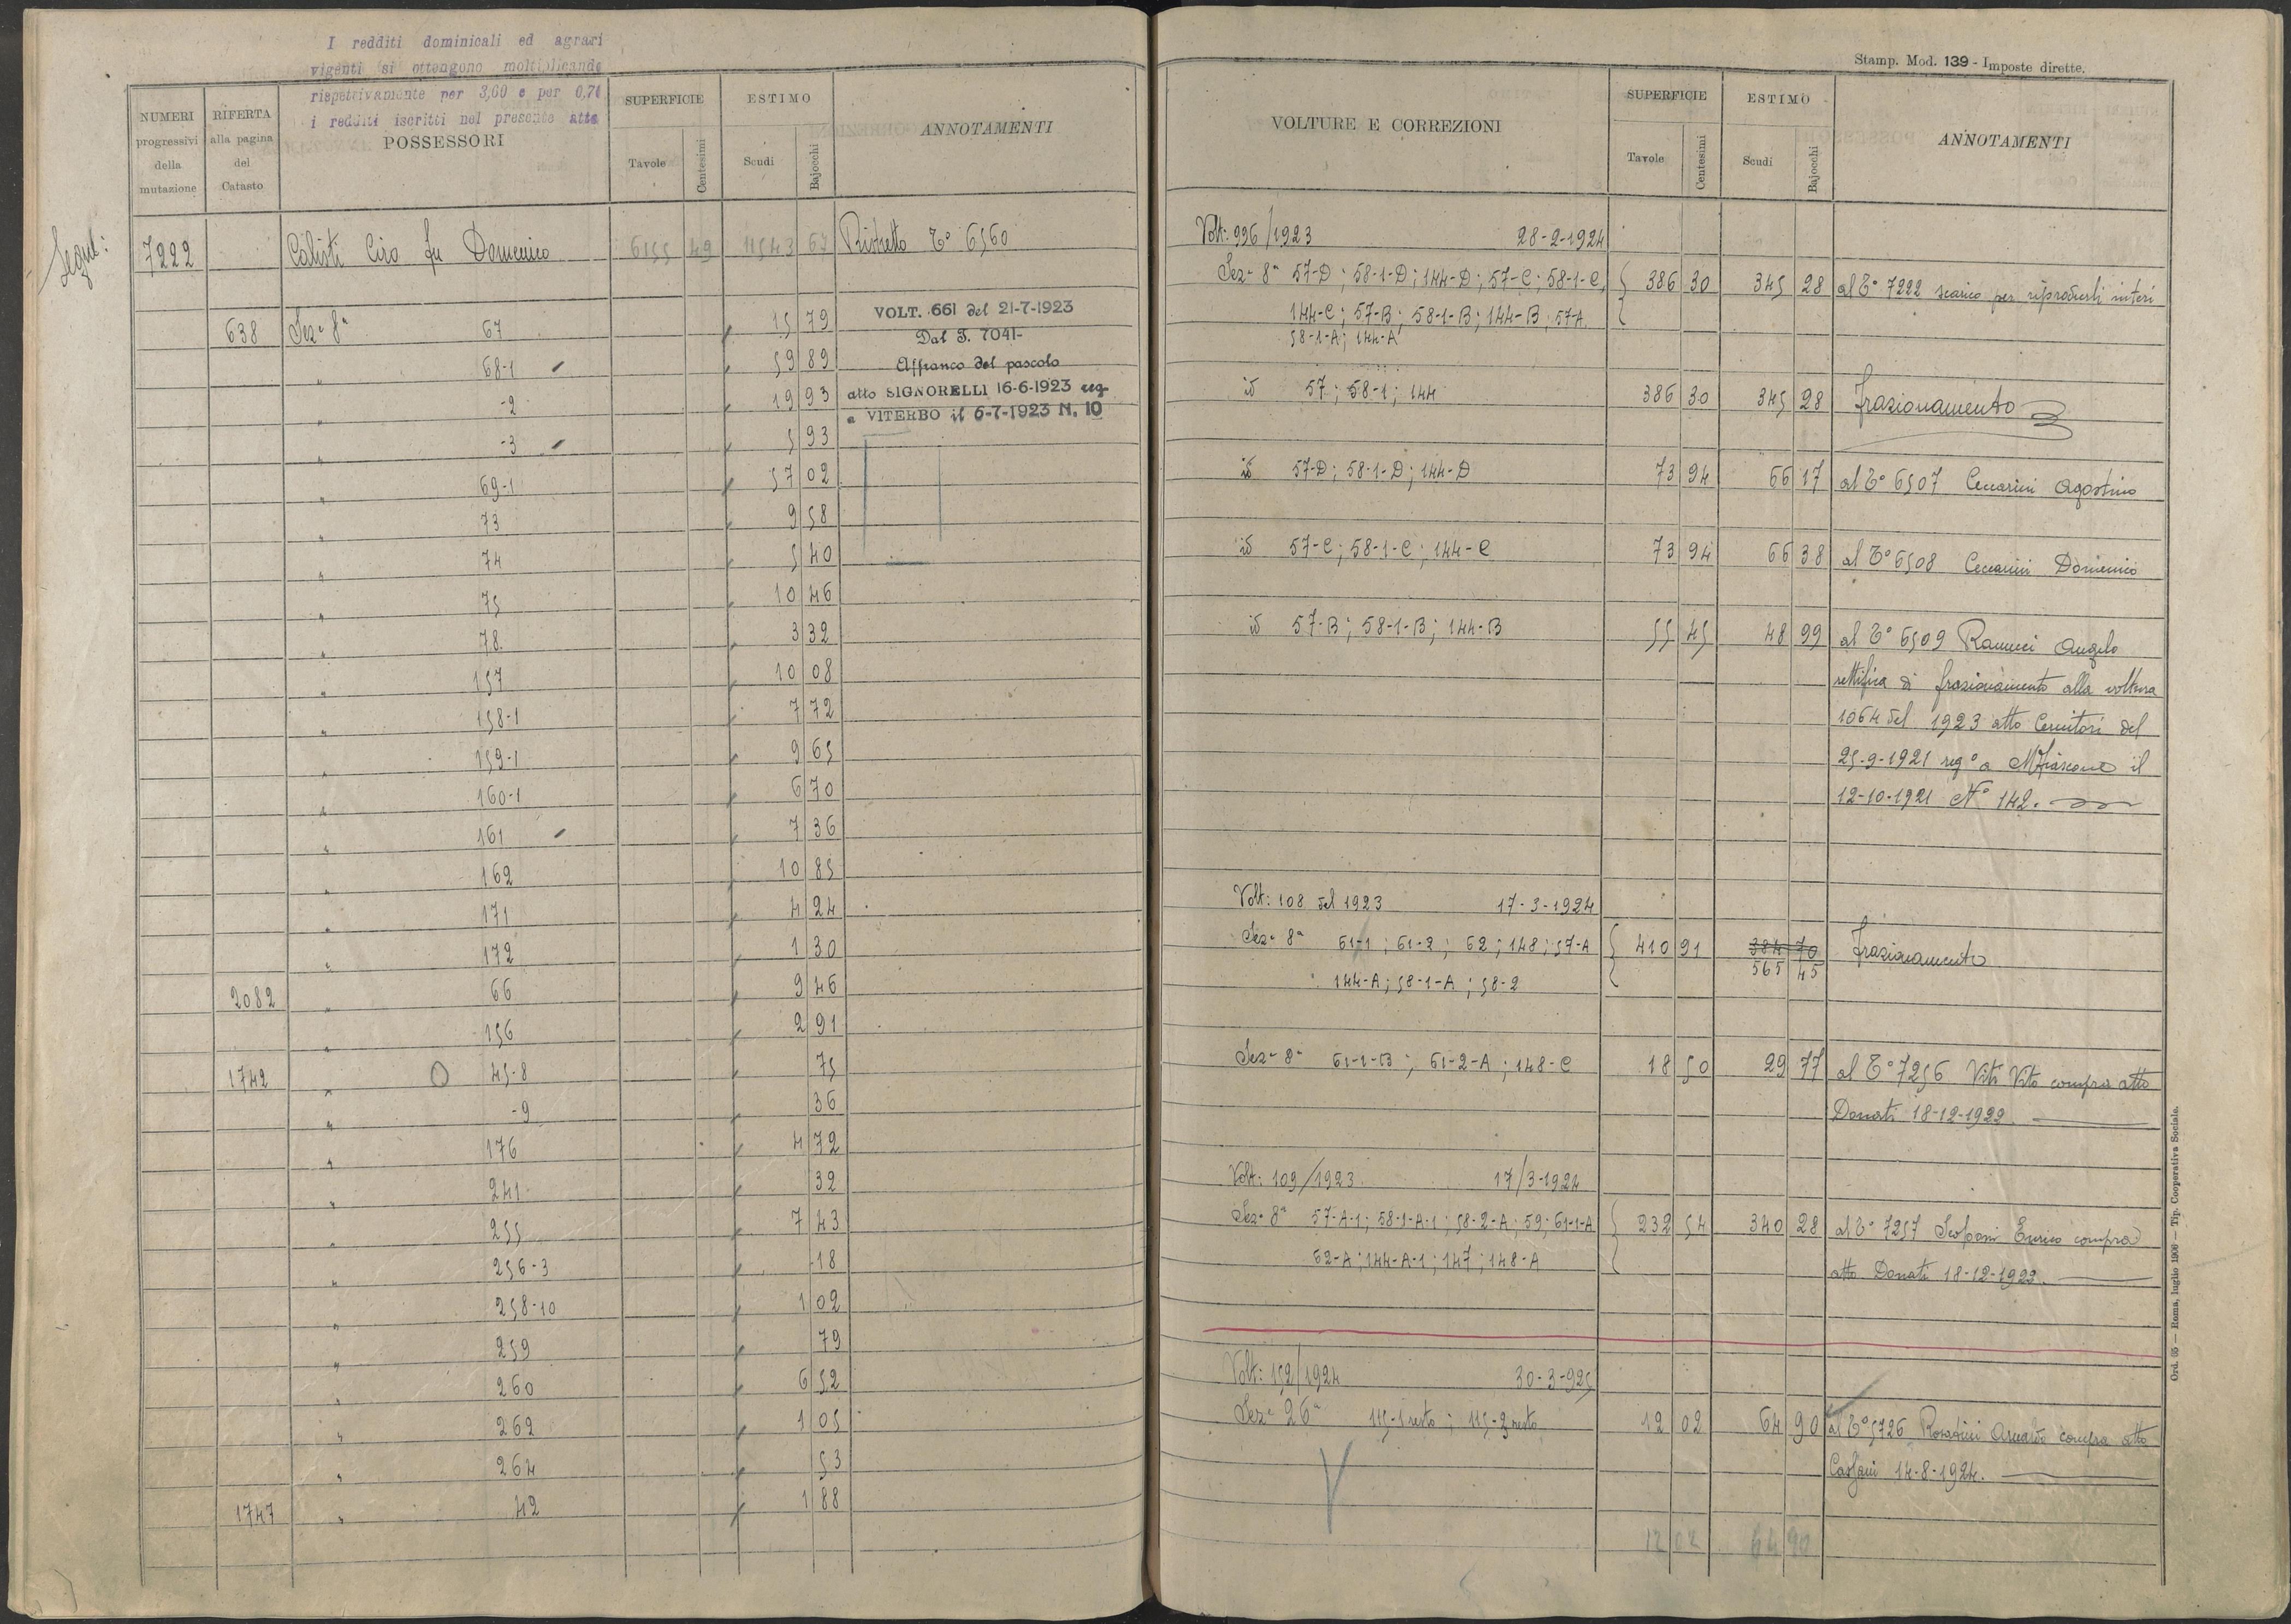 I redditi dominicali ed agrari
vigenti si ottengono moltiplicando
rispettivamente per 3,60 e per 0,70
i redditi iscritti nel presente atto
NUMERI progressivi della mutazione
RIFERTA alla pagina del Catasto
POSSESSORI
SUPERFICIE
Tavole Centesimi
ESTIMO
Scudi Bajocchi
ANNOTAMENTI
Segue:
7222 Calisti Ciro fu Domenico 6155 49 11543 67 Ristretto T° 6560
638 Sez. 8ª 67 15 79
VOLT. 661 del 21-7-1923
Dal T. 7041-
" 68-1 59 89
Affranco del pascolo
" -2 19 93
atto SIGNORELLI 16-6-1923 reg
a VITERBO il 6-7-1923 N. 10
" -3 5 93
" 69-1 57 02
" 73 9 58
" 74 5 40
" 75 10 46
" 78 3 32
" 157 10 08
" 158-1 7 72
" 159-1 9 65
" 160-1 6 70
" 161 7 36
" 162 10 85
" 171 4 24
" 172 1 30
2082 " 66 9 46
" 156 2 91
1742 " O 45-8 75
" -9 36
" 176 4 72
" 241 32
" 255 7 43
" 256-3 18
" 258-10 1 02
" 259 79
" 260 6 52
" 262 1 05
" 264 53
1747 " 42 1 88
Stamp. Mod. 139 - Imposte dirette.
VOLTURE E CORREZIONI
SUPERFICIE
Tavole Centesimi
ESTIMO
Scudi Bajocchi
ANNOTAMENTI
Volt: 996/1923 28-2-1924
Sez. 8ª 57-D; 58-1-D; 144-D; 57-C; 58-1-C, 386 30 345 28 al T° 7222 scarico per riprodursi interi
144-C; 57-B; 58-1-B; 144-B; 57-A
58-1-A; 144-A
id 57; 58-1; 144 386 30 345 28 Frazionamento
id 57-D; 58-1-D; 144-D 73 94 66 17 al T° 6507 Ceccarini Agostino
id 57-C; 58-1-C; 144-C 73 94 66 38 al T° 6508 Ceccarini Domenico
id 57-B; 58-1-B; 144-B 55 45 48 99 al T° 6509 Ranucci Angelo
rettifica di frazionamento alla voltura
1064 del 1923 atto Cernitori del
25-9-1921 reg° a MFiascone il
12-10-1921 N° 142.
Volt: 108 del 1923 17-3-1924
Sez. 8ª 61-1; 61-2; 62; 148; 57-A 410 91 384 70 Frazionamento
144-A; 58-1-A; 58-2 565 45
Sez. 8ª 61-1-B; 61-2-A; 148-C 18 50 29 77 al T° 7256 Viti Vito compra atto
Donati 18-12-1922.
Volt: 109/1923 17/3-1924
Sez. 8ª 57-A-1; 58-1-A-1; 58-2-A; 59; 61-1-A 232 54 340 28 al T° 7257 Scoponi Enrico compra
62-A; 144-A-1; 147; 148-A atto Donati 18-12-1922.
Volt: 152/1924 30-3-925
Sez. 26ª 115-1 resto; 115-2 resto 12 02 64 90 al T° 5726 compra atto
14-8-1924.
12 02 64 90
Ord. 65 — Roma, luglio 1906 — Tip. Cooperativa Sociale.